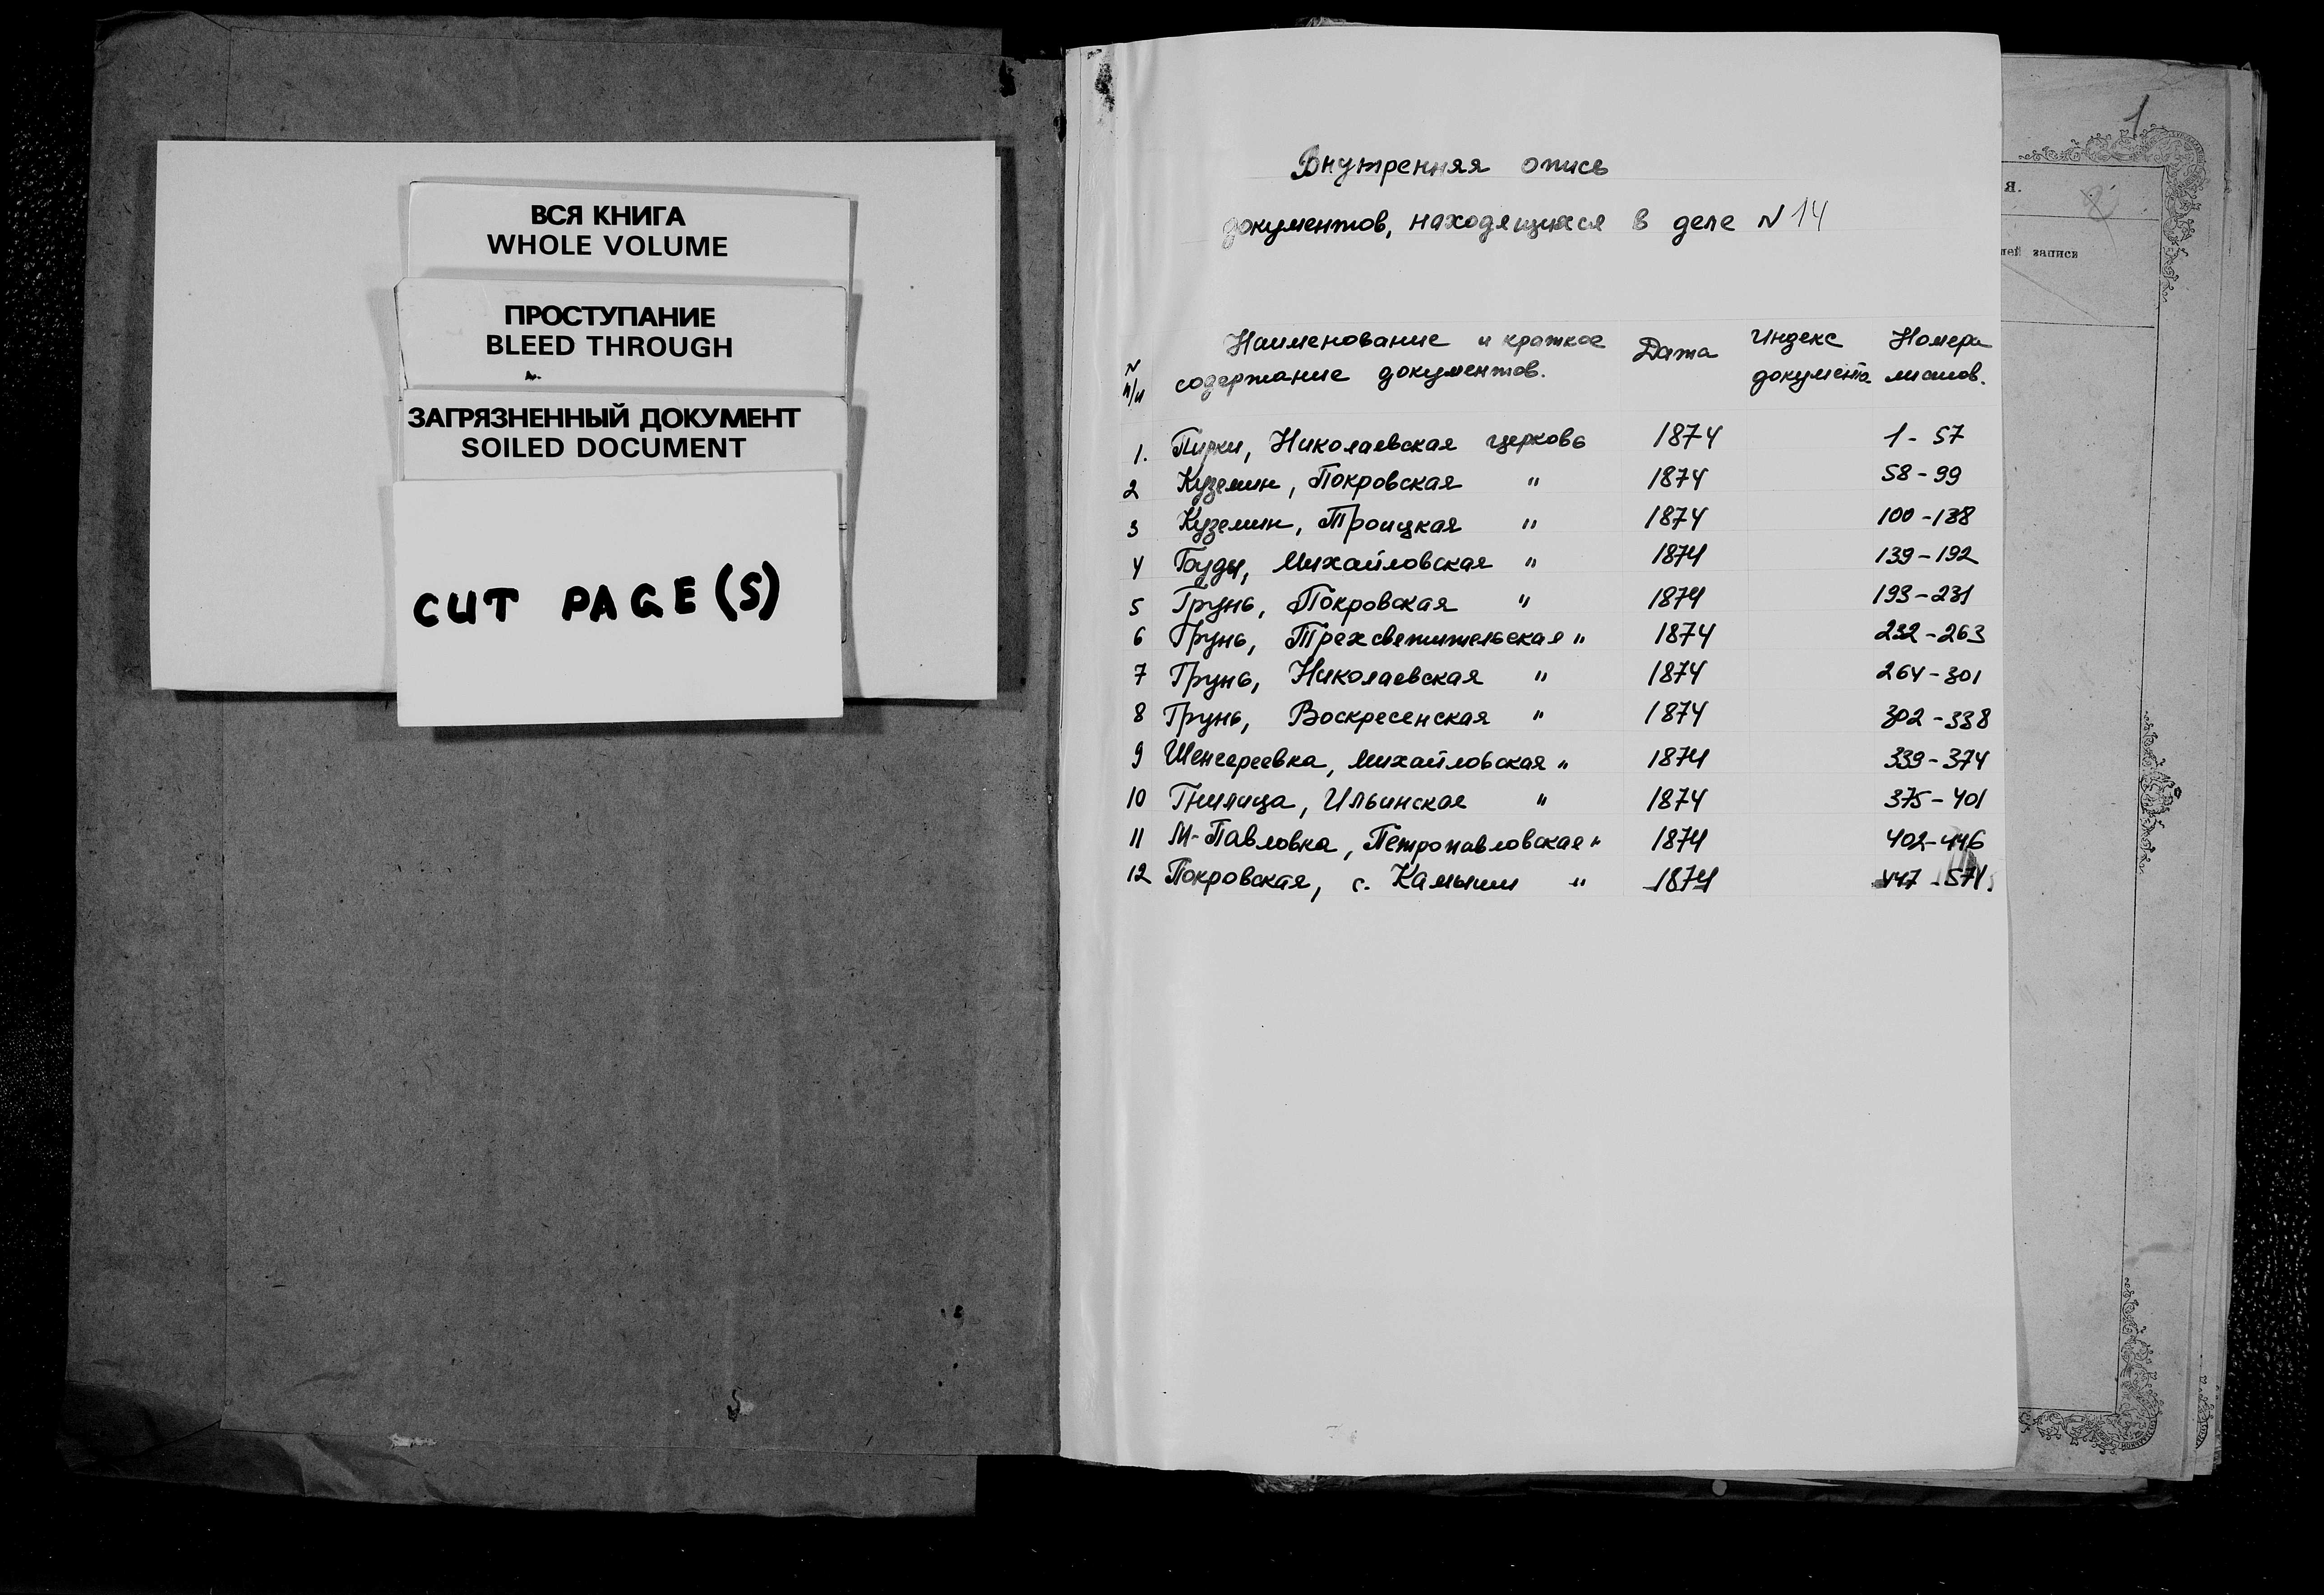 ВСЯ КНИГА
WHOLE VOLUME
ПРОСТУПАНИЕ
BLEED THROUGH
ЗАГРЯЗНЕННЫЙ ДОКУМЕНТ
SOILED DOCUMENT
CUT PAGE(S)
Внутренняя опись
документов, находящихся в деле N 14
N п/п Наименование и краткое содержание документов. Дата Индекс документа Номера листов.
1. Пирки, Николаевская церковь 1874 1-57
2 Куземин, Покровская " 1874 58-99
3 Куземин, Троицкая " 1874 100-138
4 Буды, Михайловская " 1874 139-192
5 Грунь, Покровская " 1874 193-231
6 Грунь, Трехсвятительская " 1874 232-263
7 Грунь, Николаевская " 1874 264-301
8 Грунь, Воскресенская " 1874 302-338
9 Шенгереевка, Михайловская " 1874 339-374
10 Гнилица, Ильинская " 1874 375-401
11 М-Павловка, Петропавловская " 1874 402-446
12 Покровская, с. Камыши " 1874 447-
1
Я.
записи